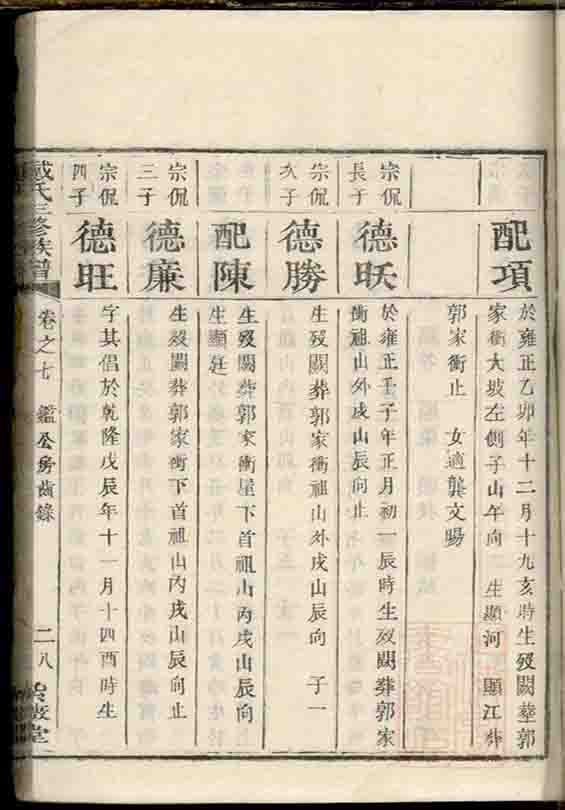 配項
於雍正乙卯年十二月十九亥時生歿闕葬郭
家衝大坡左側子山午向 生顯河 顯江葬
郭家衝止 女適龔文暘
宗侃
長子
德昄
於雍正壬子年正月初一辰時生歿闕葬郭家
衝祖山外戌山辰向止
宗侃
次子
德勝
生歿闕葬郭家衝祖山外戌山辰向 子一
配陳
生歿闕葬郭家衝屋下首祖山內戌山辰向
生顯廷
宗侃
三子
德廉
生歿闕葬郭家衝下首祖山內戌山辰向止
宗侃
四子
德旺
字其倡於乾隆戊辰年十一月十四酉時生
戴氏三修族譜
卷之七 鑑公房齒錄
二八
堂